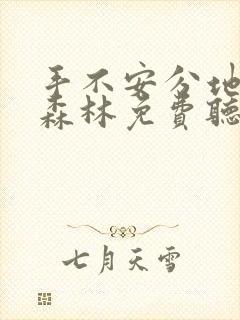 手不安分地
森林免费聽
七月天雪